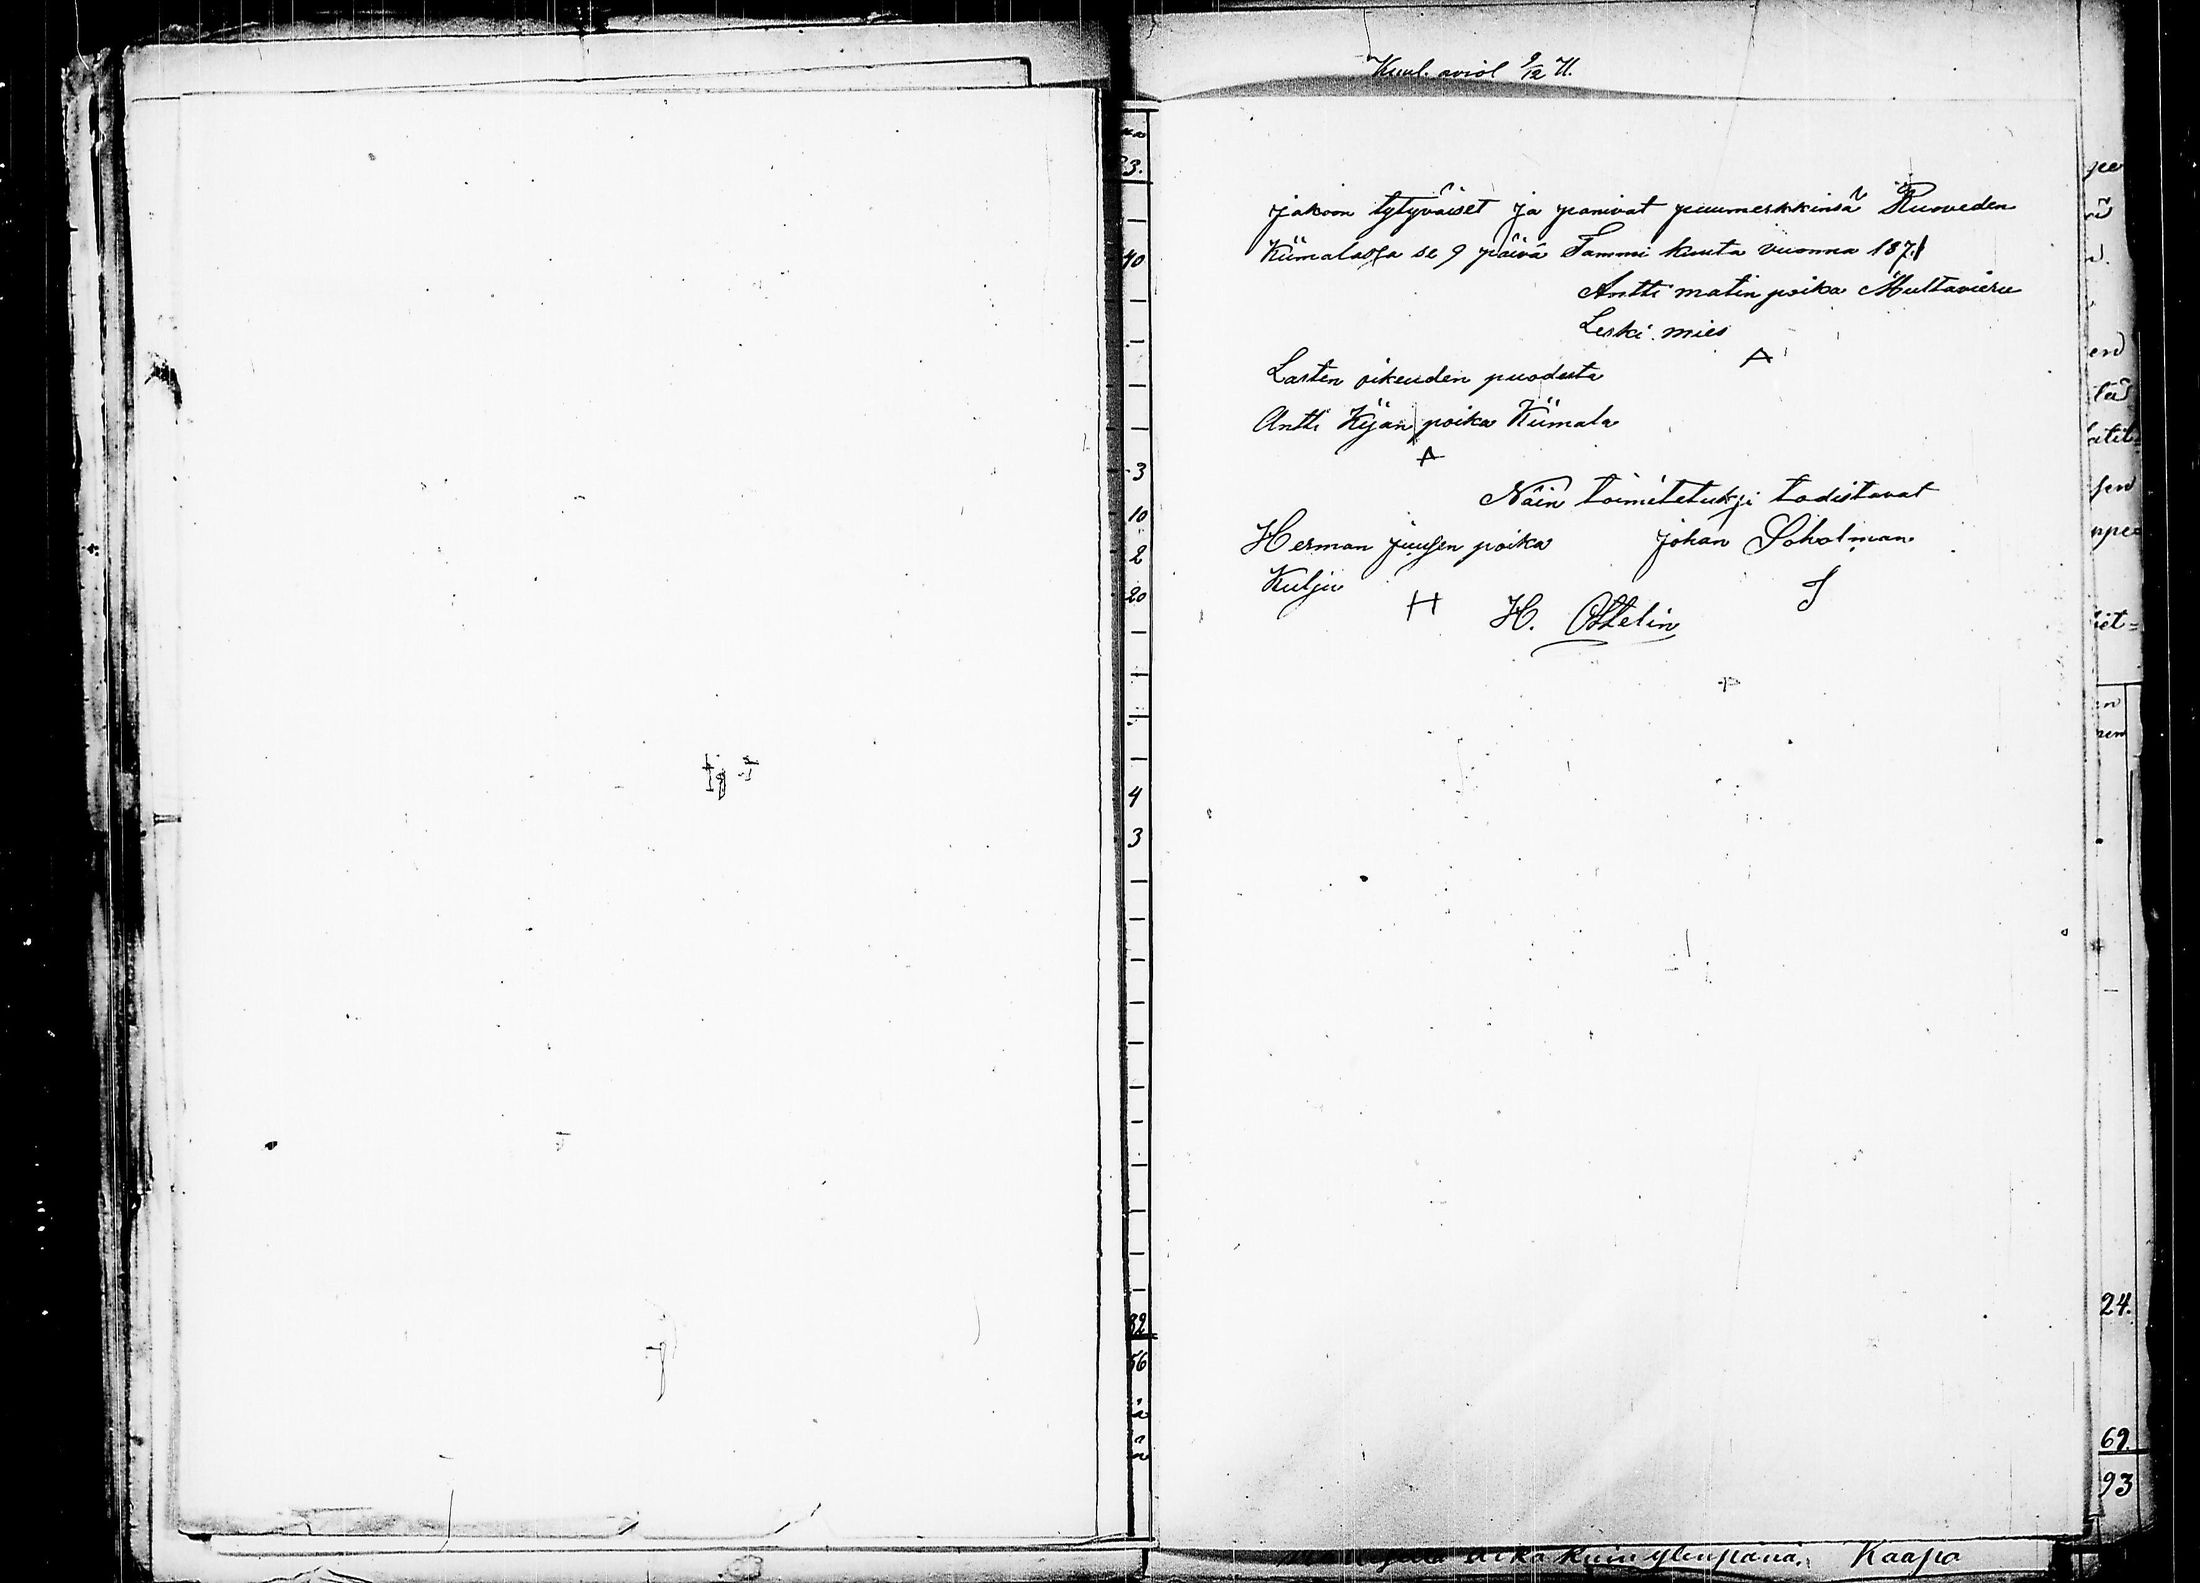 Kuul. aviol 9/12 71.
jakoon tytyväiset ja panivat puumerkkinsä Ruoveden
Kiimalassa se 9 päivä Tammi kuuta vuonna 1871
Antti matin poika Multavieru
Leski mies
A
Lasten oikeuden puodesta
Antti Kijan poika Kiimala
A
Näin toimitetuksi todistavat
Herman juusen poika Johan Soholman
Kulju H J
H. Ottelin
33.
40
3
10
2
20
4
3
32
56
24.
69.
93
aika kuin ylempänä, Kaapo